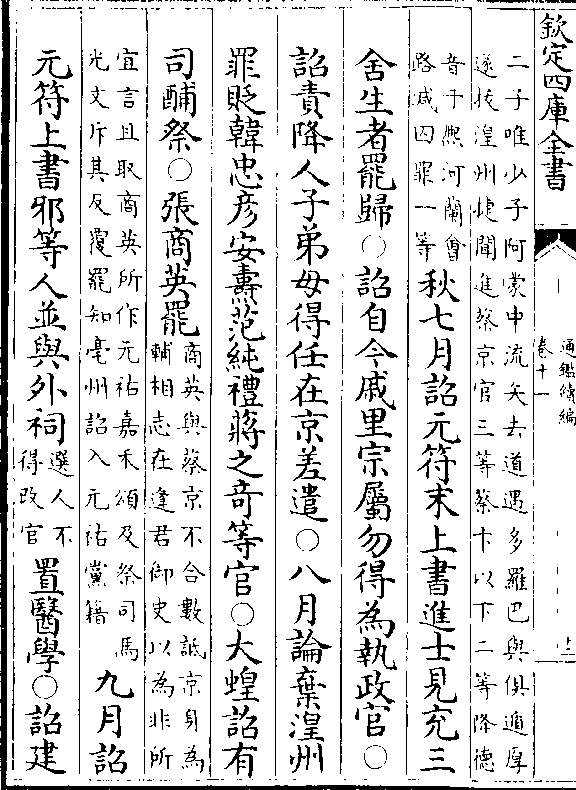 欽定四庫全書
通鑑續編
卷十一
二子唯少子阿蒙中流矢去道遇多羅巴與俱遁厚
遂拔湟州捷聞進蔡京官三等蔡卞以下二等降德
音于熈河蘭會
路减囚罪一等
秋七月詔元符末上書進士見充三
舍生者罷歸○詔自今戚里宗屬勿得為執政官○
詔責降人子弟毋得任在京差遣○八月論棄湟州
罪貶韓忠彦安燾范純禮蔣之竒等官○大蝗詔有
司酺祭○張商英罷
商英與蔡京不合數詆京身為
輔相志在逢君御史以為非所
宜言且取商英所作元祐嘉禾頌及祭司馬
光文斥其反覆罷知亳州詔入元祐黨籍
九月詔
元符上書邪等人並與外祠
選人不
得改官
置醫學○詔建